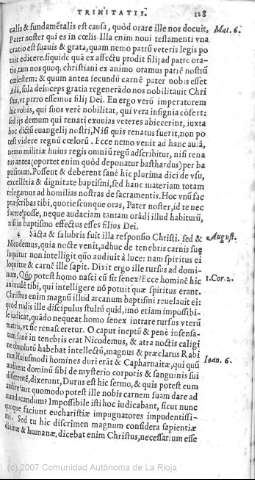 TRINITATIS. 128
calis & fundamētalis est causa, quòd orare ille nos docuit, Mat. 6.
Pater noster qui es in cœlis. Illa enim noui testamenti vna
oratio est suauis & grata, quam nemo patrū veteris legis po
tuit dicere, siquidē quia ex affectu prodit filij
ad patrem nostrū
cœlestem: & quum antea secundū carnē pater nobis esset
sola deinceps gratia regenerādo nos nobilitauit Chri
stus, vt patro essemus filij Dei. En ergo verū imperatorem
his robis, qui suos verè nobilitat, qui vera insignia
sed ijs demum qui renati exuuias veteres abiecerint, iuxta
hoc dictū euangelij nostri, Nisi quis renatus fuerit, non po
test videre regnū cœlorū. Ecce nemo venit ad hanc auā,
nemo militiæ huius regis omniū regū adscribitur, nisi rena
tus antea (oportet enim quòd deponatur bastbardus) per ba
ptismum. Possent & deberent sanè hic plurima dici de vsu,
excellētia & dignitate baptismi, sed hanc materiam totam
relegamus ad homilias nostras de sacramentis. Hoc vnū
præscribas tibi, quotiescunque oras, Pater noster, id te nec
posse, neque audaciam tantam orādi illud habiturū,
nisi in baptismo effectus esses filius Dei.
Sācta & salubris fuit illa responsio Christi. sed & August.
Nicodemus, quia nocte venit, adhuc de tenebris carnis suæ
loquitur non intelligit quòd audiuit à luce: nam spiritus ei
loquitur & carnē ille sapit. Dixit ergo ille rursus ad domi-
num, Quo potest homo nasci cū sit senex? Ecce hominē hic
tibi, qui intelligere nō potuit quæ spiritus erant. 1. Cor. 2.
Christus enim magnū illud arcanum baptismi reuelauit ei:
quod nisi ille discipulus stulte quid, imò etiam impossibi-
le iudicat, quādo nequeat homo senex intrare rursus vterū
matris, vt sic renasceretur. O caput ineptū & penè insensa-
tum in tenebris erat Nicodemus, & atra noctis caligi
habebat intellectū, magnus & præclarus Rabi
Huiusmodi homines duri erāt & Capharnaitæ, qui quū Ioan. 6.
dominū sibi de mysterio corporis & sanguinis sui
dixerunt, Durus est hic sermo, & quis potest eum
audire? aut quomodo potest ille nobis carnem suam dare ad
manducandum? Impossibile isti hoc iudicabant, sicut nunc
quoque faciunt eucharistiæ impugnatores impudentissi-
mi. Sed tu hic discrimen magnum considera sapientiæ
diuinæ & humanæ. dicebat enim Christus, necessarium esse
(c) 2007 Comunidad Autónoma de La Rioja